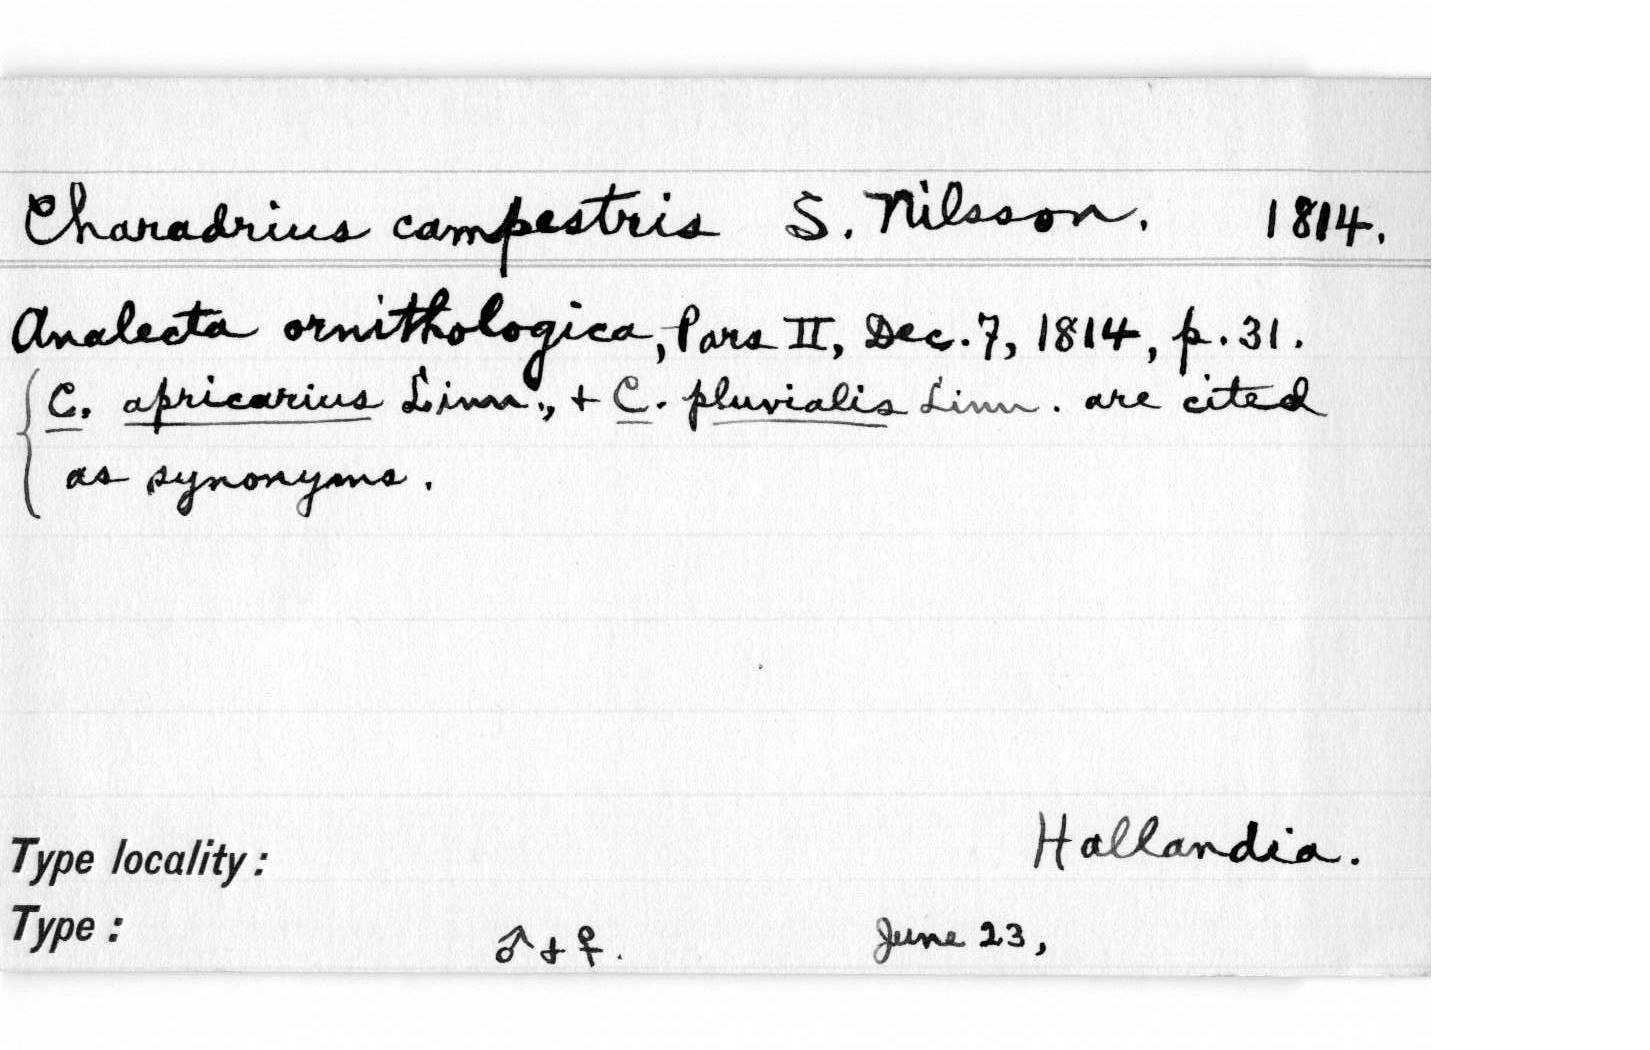 Charadrius campestris S. Nilsson. 1814.
Analecta ornithologica, Pars II, Dec. 7, 1814, p. 31.
C. apricarius Linn., + C. pluvialis Linn. are cited
as synonyms.
Type locality: Hallandia.
Type: ♂ + ♀. June 23,